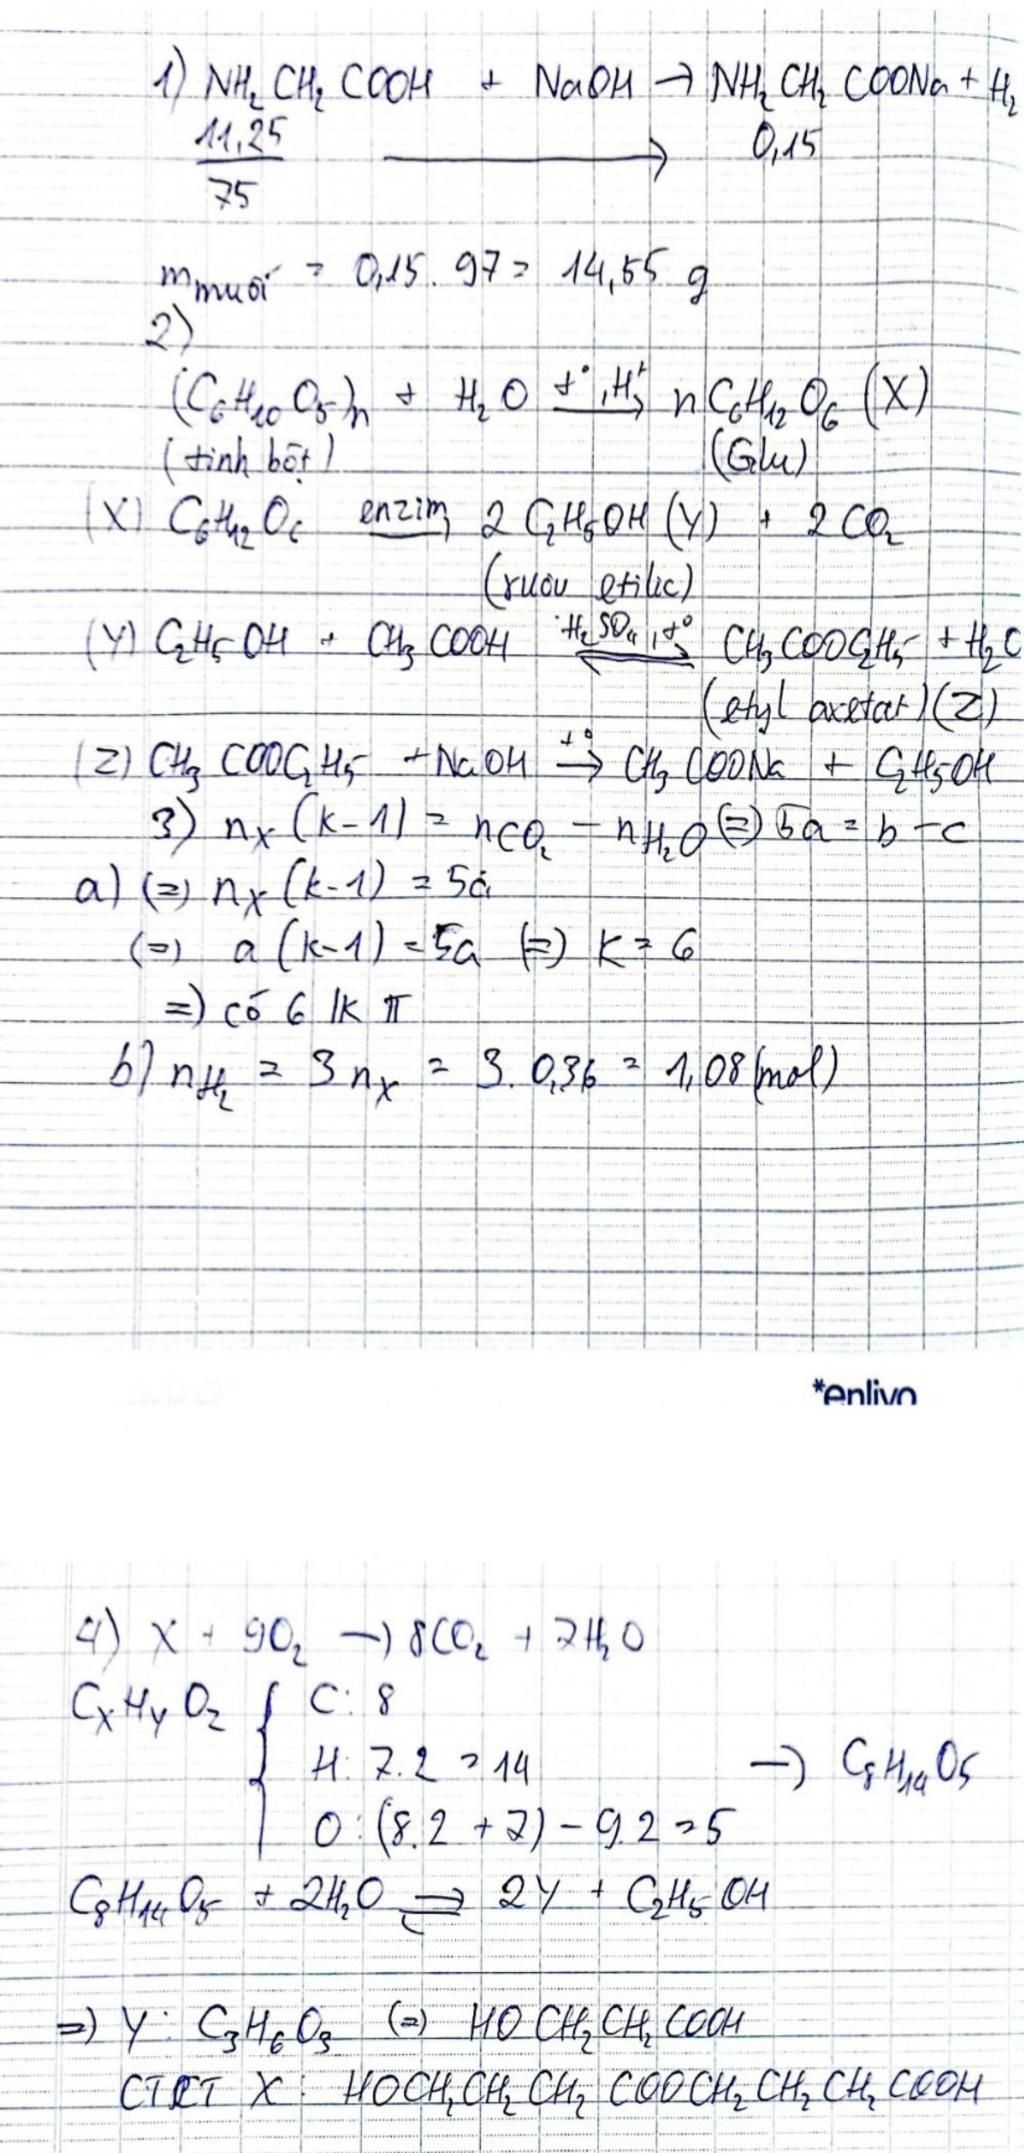 1) NH₂CH₂COOH + NaOH → NH₂CH₂COONa + H₂
11,25/75 → 0,15
m muối = 0,15. 97 = 14,55 g
2)
(C₆H₁₀O₅)n + H₂O t°,H⁺→ nC₆H₁₂O₆ (X)
(tinh bột) (Glu)
(X) C₆H₁₂O₆ enzim→ 2C₂H₅OH (Y) + 2CO₂
(rượu etilic)
(Y) C₂H₅OH + CH₃COOH H₂SO₄,t° ⇌ CH₃COOC₂H₅ + H₂O
(etyl axetat) (Z)
(Z) CH₃COOC₂H₅ + NaOH t°→ CH₃COONa + C₂H₅OH
3) nX (k-1) = nCO₂ - nH₂O (=) 5a = b - c
a) (=) nX (k-1) = 5a
(=) a (k-1) = 5a (=) k = 6
=) có 6 lk π
b) nH₂ = 3nX = 3. 0,36 = 1,08 (mol)
*enlivn
4) X + 9O₂ → 8CO₂ + 7H₂O
CxHyOz { C: 8
H: 7.2 = 14 → C₈H₁₄O₅
O: (8.2 + 7) - 9.2 = 5
C₈H₁₄O₅ + 2H₂O ⇌ 2Y + C₂H₅OH
=) Y: C₃H₆O₃ (=) HOCH₂CH₂COOH
CTCT X: HOCH₂CH₂CH₂COOCH₂CH₂CH₂COOH